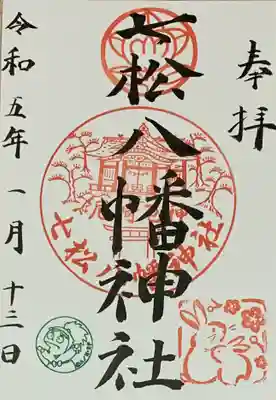 奉拝
七松八幡神社
七松八幡神社
令和五年一月十三日